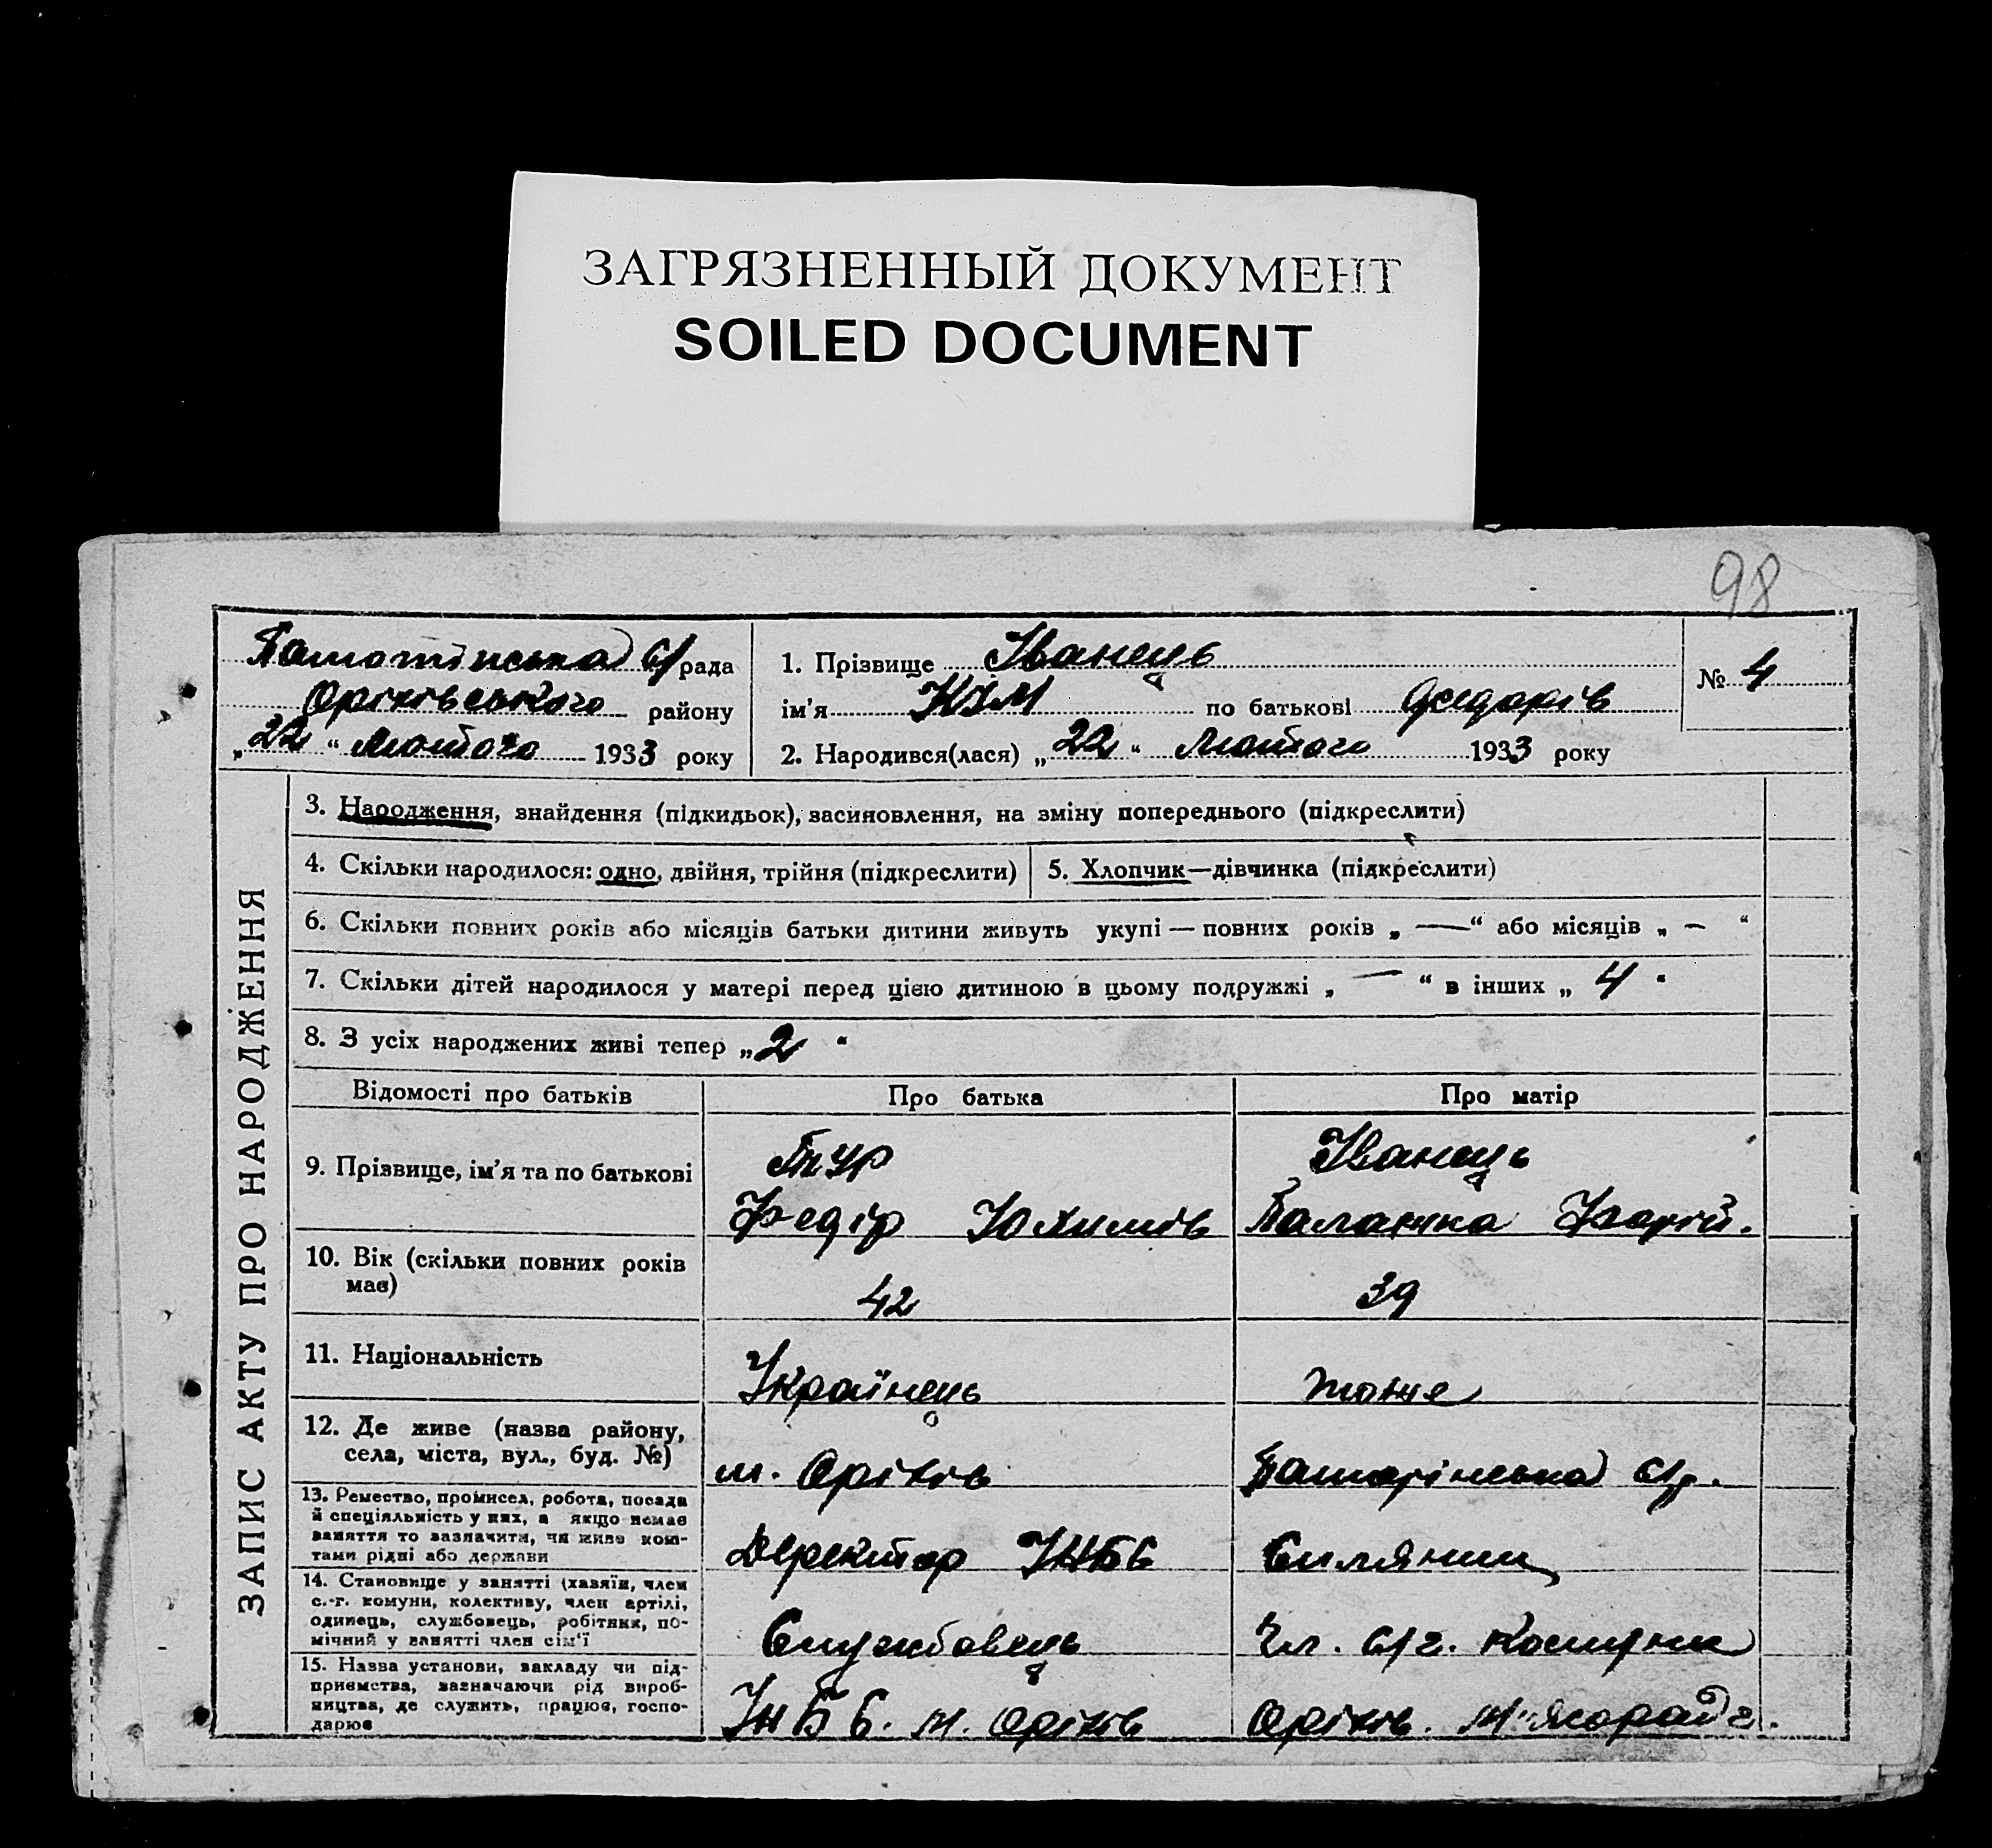 ЗАГРЯЗНЕННЫЙ ДОКУМЕНТ
SOILED DOCUMENT
98
с/рада
Оріхівського району
„22“ Лютого 1933 року
1. Прізвище Іванець
ім'я КІМ по батькові Федорів
2. Народився(лася) „22“ Лютого 1933 року
№ 4
ЗАПИС АКТУ ПРО НАРОДЖЕННЯ
3. Народження, знайдення (підкидьок), засиновлення, на зміну попереднього (підкреслити)
4. Скільки народилося: одно, двійня, трійня (підкреслити)
5. Хлопчик—дівчинка (підкреслити)
6. Скільки повних років або місяців батьки дитини живуть укупі — повних років „ — “ або місяців „ — “
7. Скільки дітей народилося у матері перед цією дитиною в цьому подружжі „ — “ в інших „ 4 “
8. З усіх народжених живі тепер „ 2 “
Відомості про батьків
Про батька
Про матір
9. Прізвище, ім'я та по батькові
Тур
Федір Юхимів
Іванець
10. Вік (скільки повних років
має)
42
39
11. Національність
Українець
тоже
12. Де живе (назва району,
села, міста, вул., буд. №)
м. Оріхів
с/р.
13. Ремество, промисел, робота, посада
й спеціяльність у них, а якщо немає
заняття то зазначити, чи живе кош-
тами рідні або держави
Директор
14. Становище у занятті (хазяїн, член
с.-г. комуни, колективу, член артілі,
одинець, службовець, робітник, по-
мічний у занятті член сім'ї
Службовець
Чл. с/г. Комуни
15. Назва установи, закладу чи під-
приємства, зазначаючи рід вироб-
ництва, де служить, працює, госпо-
дарює
м. Оріхів
Оріхів.